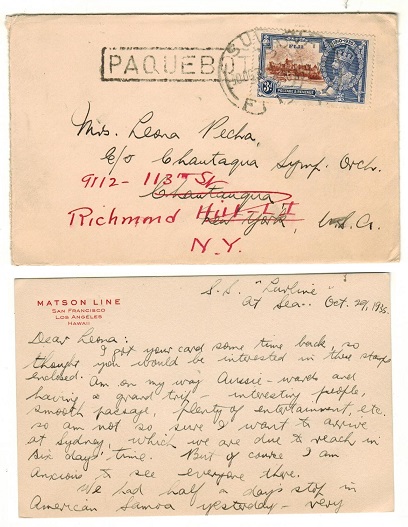 PAQUEBOT
SU
FIJI
FIJI
3d
POSTAGE & REVENUE
Mrs. Leona Pecha,
c/o Chautaqua Symp. Orch.
9112 - 113th St.
Chautauqua
Richmond Hill L I
New York, U.S.A.
N.Y.
MATSON LINE
SAN FRANCISCO
LOS ANGELES
HAWAII
S.S. "Lurline"
At Sea.. Oct. 29, 1935.
Dear Leona:
I got your card some time back, so
thought you would be interested in these stamps
enclosed. Am on my way Aussie-wards and
having a grand trip - interesting people,
smooth passage, plenty of entertainment, etc.
so am not so sure I want to arrive
at Sydney, which we are due to reach in
six days' time. But of course I am
anxious to see everyone there.
We had half a day's stop in
American Samoa yesterday - very